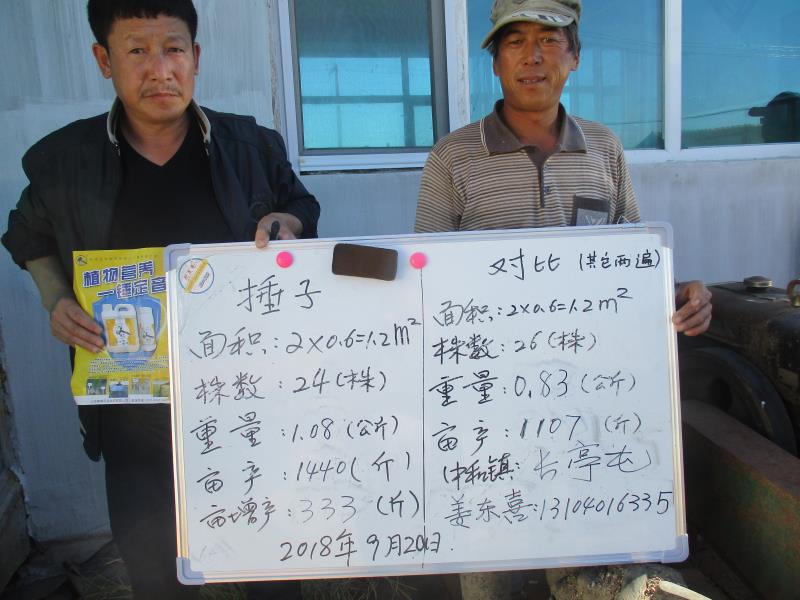 植物营养
一锤定音
捶子
面积:2×0.6=1.2m²
株数:24(株)
重量:1.08(公斤)
亩产:1440(斤)
亩增产:333(斤)
对比(其它两遍)
面积:2×0.6=1.2m²
株数:26(株)
重量:0.83(公斤)
亩产:1107(斤)
(中和镇:长亭屯
姜东喜:13104016335
2018年9月20日.